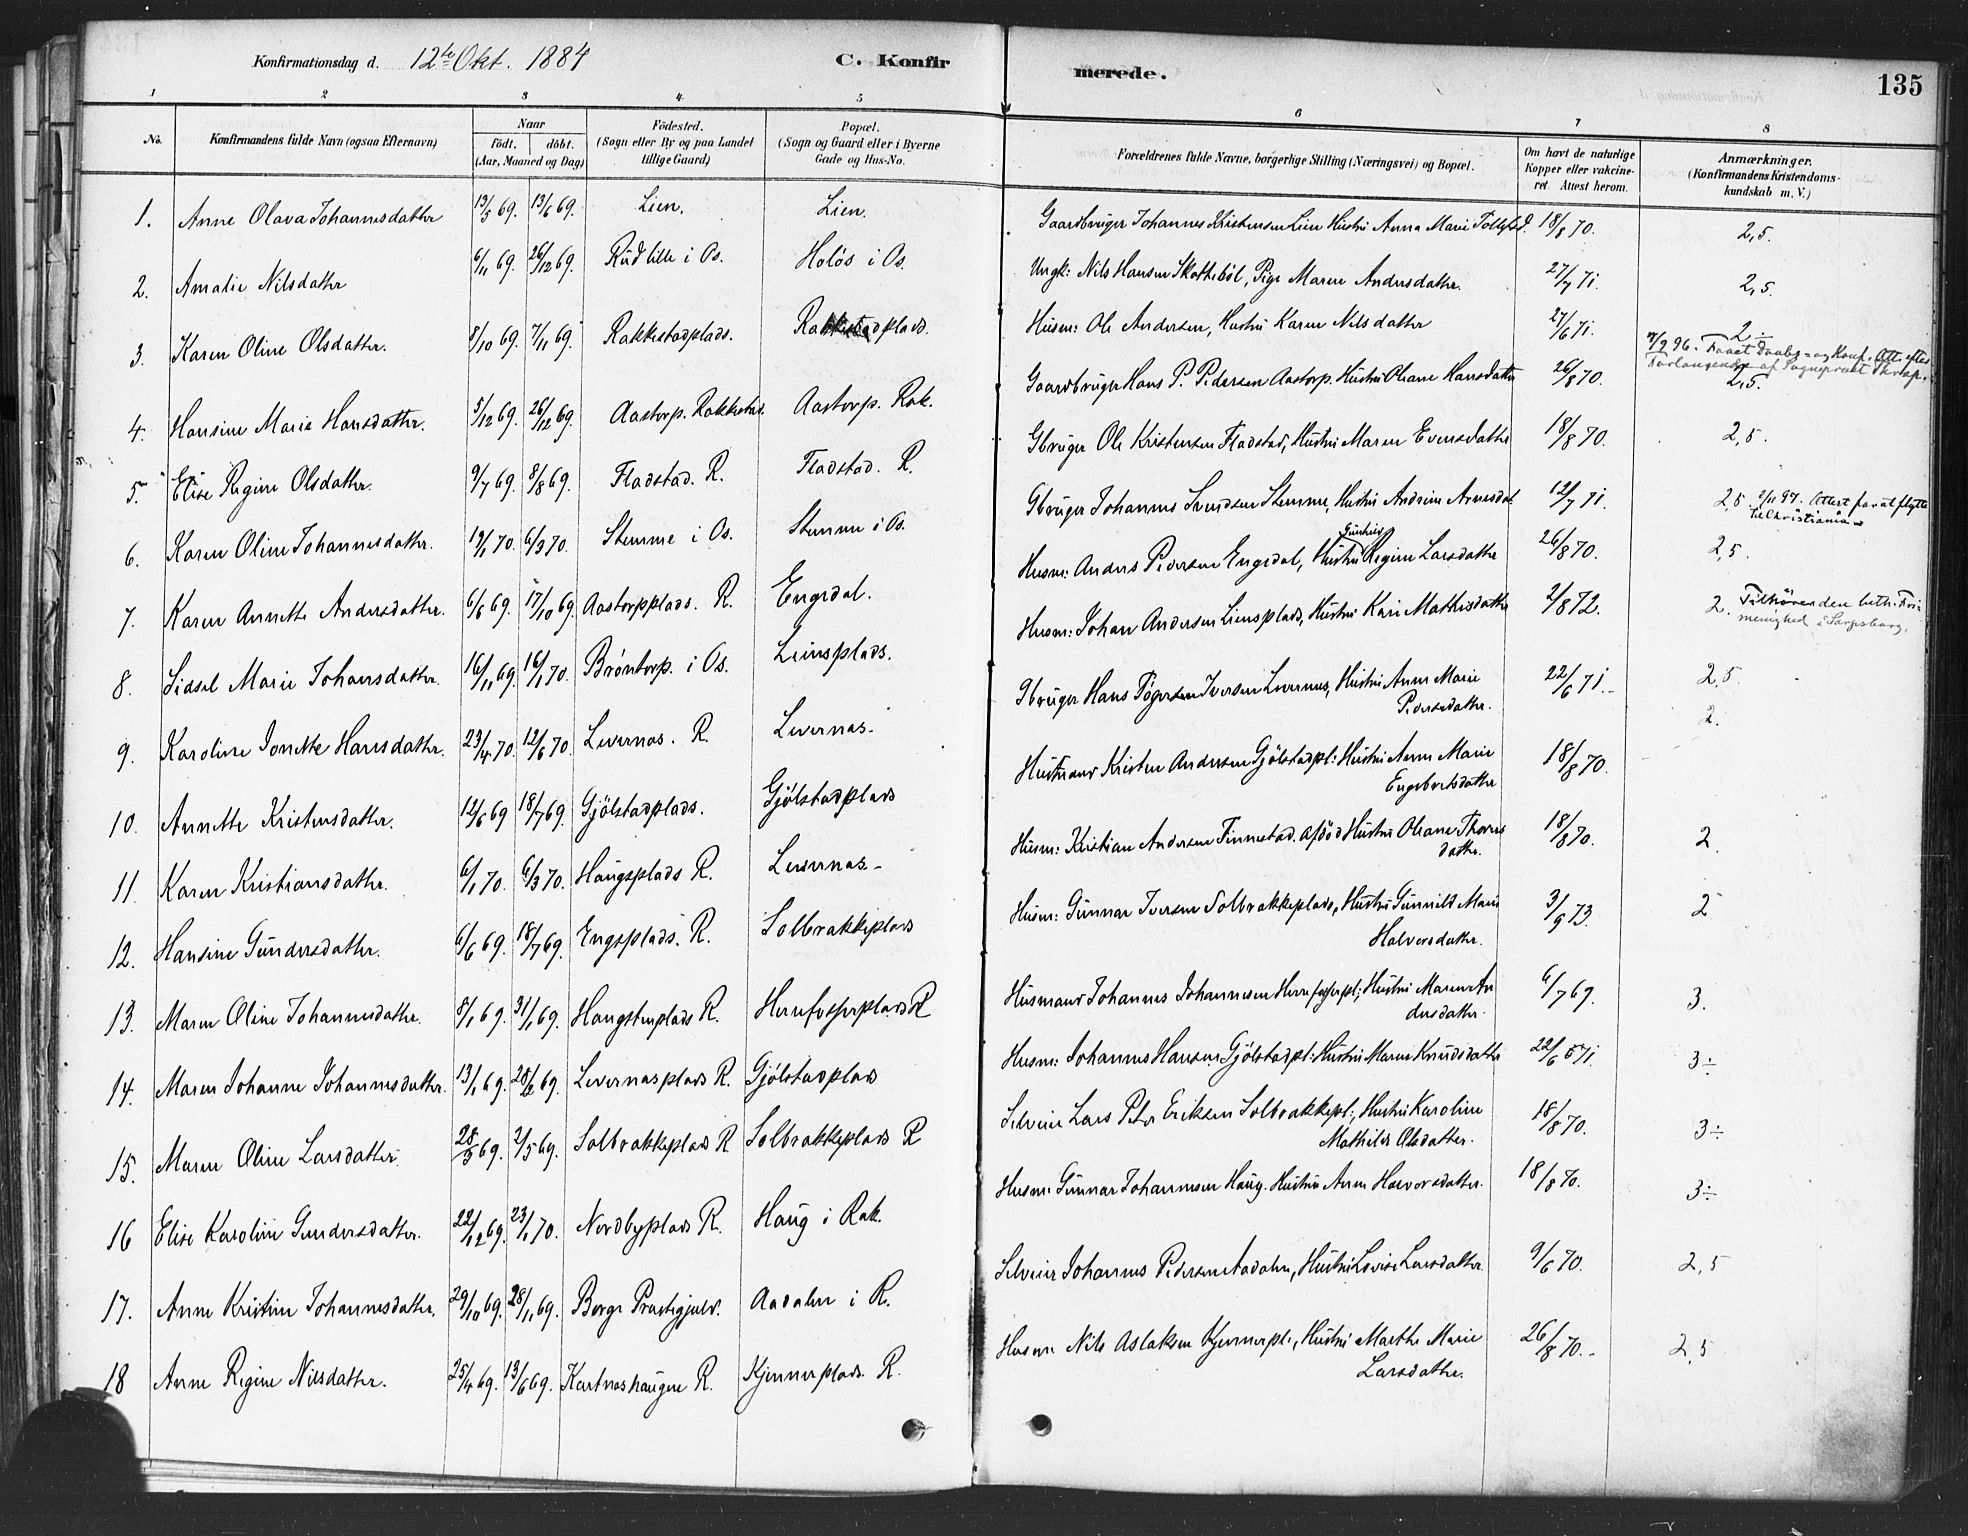 Konfirmationsdag d. 12te Okt. 1884 C. Konfirmerede. 135
1 2 3 4 5 6 7 8
No. Konfirmandens fulde Navn (ogsaa Efternavn) Naar født. døbt. (Aar, Maaned og Dag) Fødested. (Sogn eller By og paa Landet tillige Gaard) Bopæl. (Sogn og Gaard eller i Byerne Gade og Hus-No. Forældrenes fulde Navne, borgerlige Stilling (Næringsvei) og Bopæl. Om havt de naturlige Kopper eller vakcineret. Attest herom. Anmærkninger. (Konfirmandens Kristendomskundskab m. V.)
1. Anne Olava Johannesdatter 13/5 69. 13/6 69. Lien. Lien. Gaardbruger Johannes Kristensen Lien Hustru Anna Marie 18/8 70. 2,5.
2. Amalie Nilsdatter 6/11 69. 26/12 69. Rud lille i Os. Holøs i Os. Ungk: Nils Hansen Skottebøl, Pige Maren Andersdatter. 27/7 71. 2,5.
3. Karen Oline Olsdatter. 8/10 69. 7/11 69. Rakkestadplads. Rakkestadplads. Husm: Ole Andersen, Hustru Karen Nilsdatter 27/6 71. 2÷
/9 96. Faaet Daabs- og Konf. Att. efter
Forlangende af Sogneprest
4. Hansine Marie Hansdatter. 5/12 69. 26/12 69. Aastorp. Rakkestad. Aastorp. Rak. Gaardbruger Hans P. Pedersen Aastorp. Hustru Oliane Hansdatter 26/8 70. 2,5.
5. Elise Regine Olsdatter. 9/7 69. 8/8 69. Fladstad. R. Fladstad. R. Gbruger Ole Kristensen Fladstad, Hustru Maren Evensdatter 18/8 70. 2,5.
6. Karen Oline Johannesdatter. 19/1 70. 6/3 70. Stemme i Os. Stemme i Os. Gbruger Johannes Svendsen Stemme, Hustru Andrine Arnesdat. 12/7 71. 2,5. /11 97. Attest for at flytte
til Christiania
7. Karen Annette Andersdatter. 6/6 69. 17/10 69. Aastorpplads. R. Engedal. Husm: Anders Pedersen Engedal, Hustru Gunhild Regine Larsdatter 26/8 70. 2,5.
8. Sidsel Marie Johansdatter. 16/11 69. 16/1 70. Brøntorp. i Os. Liensplads. Husm: Johan Andersen Liensplads, Hustru Kari Mathisdatter 2/8 72. 2. Tilhører den luth. Fri-
menighed i Sarpsborg.
9. Karoline Jonette Hansdatter. 23/4 70. 12/6 70. Levernas. R. Levernas. Gbruger Hans Iversen Levernes, Hustru Anne Marie
Pedersdatter. 22/6 71. 2,5.
10. Annette Kristensdatter. 12/6 69 18/7 69. Gjølstadplads. Gjølstadplads Husmand Kristen Andersen Gjølstadpl: Hustru Anne Marie
Engebretsdatter 18/8 70. 2.
11. Karen Kristiansdatter. 6/1 70. 6/3 70. Haugsplads R. Levernas. Husm: Kristian Andersen Finnestad. afdød Hustru Oliane Thores
datter. 18/8 70. 2.
12. Hansine Gundersdatter. 6/6 69. 18/7 69. Engsplads. R. Solbrakkeplads Husm: Gunnar Iversen Solbrakkeplads, Hustru Gunnild Marie
Halvorsdatter. 3/9 73. 2
13. Maren Oline Johannesdatter. 8/1 69. 31/1 69. Haugstenplads R. R Husmand Johannes Johannesen Hustru Maren An
dersdatter. 6/7 69. 3.
14. Maren Johanne Johannesdatter. 13/1 69. 28/2 69. Levernasplads R. Gjølstadplads Husm: Johannes Hansen Gjølstadpl: Hustru Maren Knudsdatter 22/6 71. 3÷
15. Maren Oline Larsdatter. 28/3 69. 2/5 69. Solbrakkeplads R Solbrakkeplads R Selveier Lars Peter Eriksen Solbrakkepl:, Hustru Karoline
Mathilde Olsdatter. 18/8 70. 3÷
16 Elise Karoline Gundersdatter. 22/12 69. 23/1 70. Nordbyplads R. Haug i Rak. Husm: Gunnar Johannesen Haug. Hustru Anne Halvorsdatter. 18/8 70. 3÷
17. Anne Kristine Johannesdatter. 29/10 69. 28/11 69. Borge Prestegjeld. Aadalen i R. Selveier Johannes Pedersen Aadalen, Hustru Lovise Larsdatter 9/6 70. 2,5
18 Anne Regine Nilsdatter. 25/4 69. 13/6 69. Kartnaskaugen R. Kjennerplads R. Husm: Nils Aslaksen Kjennerpl:, Hustru Marthe Marie
Larsdatter. 26/8 70. 2,5